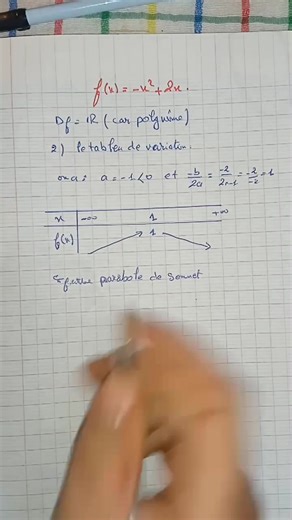 f(x) = -x² + 2x.
Df = IR (car polynôme)
2) le tableau de variation.
on a : a = -1 < 0 et -b/2a = -2/2×-1 = -2/-2 = 1
x -∞ 1 +∞
f(x) 1
parabole de sommet